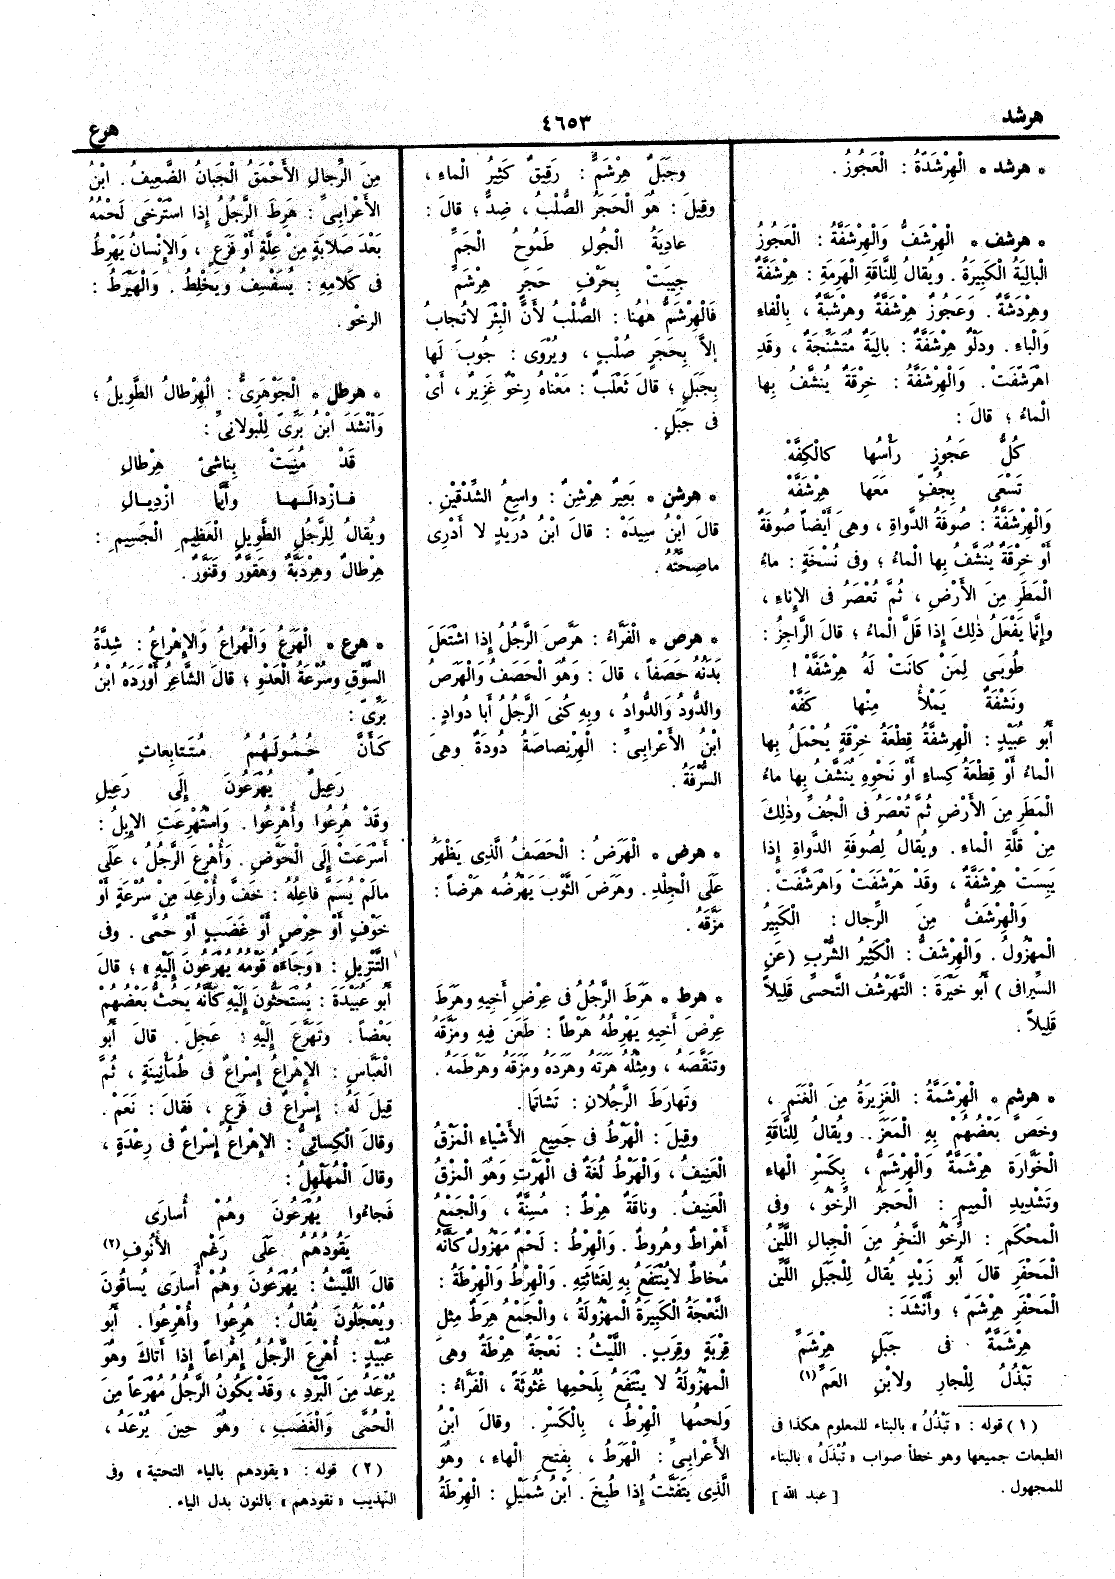 هرشد
٤٦٥٣
هرع
* هرشد * الْهِرْشَدَّةُ : الْعَجُوزُ .
* هرشف * الْهِرْشَفُّ وَالْهِرْشَفَّةُ : الْعَجُوزُ
الْبالِيَةُ الْكَبِيرَةُ . وَيُقالُ لِلنَّاقَةِ الْهَرِمَةِ : هِرْشَفَّةٌ
وهِرْدَشَّةٌ . وَعَجُوزٌ هِرْشَفَّةٌ وهِرْشَبَّةٌ ، بِالْفاءِ
وَالْباءِ . ودَلْوٌ هِرْشَفَّةٌ : بالِيَةٌ مُتَشَنِّجَةٌ ، وقَدِ
اهْرَشَّفَتْ . وَالْهِرْشَفَّةُ : خِرْقَةٌ يُنَشَّفُ بِها
الْماءُ ؛ قالَ :
كُلُّ عَجُوزٍ رَأْسُها كالْكِفَّهْ
تَسْعَى بِجُفٍّ مَعَها هِرْشَفَّهْ
وَالْهِرْشَفَّةُ : صُوفَةُ الدَّواةِ ، وهىَ أَيْضاً صُوفَةٌ
أَوْ خِرْقَةٌ يُنَشَّفُ بِها الْماءُ ؛ وفى نُسْخَةٍ : ماءُ
الْمَطَرِ مِنَ الأَرْضِ ، ثُمَّ تُعْصَرُ فى الإِناءِ ،
وإِنَّما يَفْعَلُ ذٰلِكَ إِذا قَلَّ الْماءُ ؛ قالَ الرَّاجِزُ :
طُوبَى لِمَنْ كانَتْ لَهُ هِرْشَفَّهْ !
ونَشْفَةٌ يَمْلأُ مِنْها كَفَّهْ
أَبُو عُبَيْدٍ : الْهِرْشَفَّةُ قِطْعَةُ خِرْقَةٍ يُحْمَلُ بِها
الْماءُ أَوْ قِطْعَةُ كِساءٍ أَوْ نَحْوِهِ يُنَشَّفُ بِها ماءُ
الْمَطَرِ مِنَ الأَرْضِ ثُمَّ تُعْصَرُ فى الْجُفِّ وذٰلِكَ
مِنْ قِلَّةِ الْماءِ . وَيُقالُ لِصُوفَةِ الدَّواةِ إِذا
يَبِسَتْ هِرْشَفَّةٌ ، وقَدْ هَرْشَفَتْ وَاهْرَشَّفَتْ .
وَالْهِرْشَفُّ مِنَ الرِّجالِ : الْكَبِيرُ
الْمَهْزُولُ . وَالْهِرْشَفُّ : الْكَثِيرُ الشُّرْبِ (عَنِ
السِّيرافى ) أَبُو خَيْرَةَ : التَّهَرْشُفُ التَّحَسِّى قَلِيلاً
قَلِيلاً .
* هرشم * الْهِرْشَمَّةُ : الْغَزِيرَةُ مِنَ الْغَنَمِ ،
وخَصَّ بَعْضُهُمْ بِهِ الْمَعَزَ . وَيُقالُ لِلنَّاقَةِ
الْخَوَّارَةِ هِرْشَمَّةٌ وَالْهِرْشَمُّ ، بِكَسْرِ الْهاءِ
وَتَشْدِيدِ الْمِيمِ : الْحَجَرُ الرِّخْوُ ، وفى
الْمحْكَمِ : الرِّخْوُ النَّخِرُ مِنَ الْجِبالِ اللَّيِّنُ
الْمَحْفَرِ قالَ أَبُو زَيْدٍ يُقالُ لِلْجَبَلِ اللَّيِّنِ
الْمَحْفَرِ هِرْشَمٌّ ؛ وأَنْشَدَ :
هِرْشَمَّةٌ فى جَبَلٍ هِرْشَمِّ
تَبْذُلُ لِلْجارِ ولابْنِ العَمِّ (١)
(١) قوله : « تَبْذُلُ » بالبناء للمعلوم هكذا فى
الطبعات جميعها وهو خطأ صواب « تُبْذَلُ » بالبناء
للمجهول .
[ عبد الله ]
وجَبَلٌ هِرْشَمٌّ : رَقِيقٌ كَثِيرُ الْماءِ ،
وقِيلَ : هُوَ الْحَجَرُ الصُّلْبُ ، ضِدٌّ ؛ قالَ :
عادِيَةُ الْجُولِ طَمُوحُ الْجَمِّ
جِيبَتْ بِحَرْفِ حَجَرٍ هِرْشَمِّ
فَالْهِرْشَمُّ هٰهُنا : الصُّلْبُ لأَنَّ الْبِئْرَ لاتُجابُ
إلاَّ بِحَجَرٍ صُلْبٍ ، ويُرْوَى : جُوبَ لَها
بِجَبَلٍ ؛ قالَ ثَعْلَبٌ : مَعْناهُ رِخْوٌ غَزِيرٌ ، أَىْ
فى جَبَلٍ .
* هرشن * بَعِيرٌ هِرْشِنٌ : واسِعُ الشِّدْقَيْنِ .
قالَ ابْنُ سِيدَهْ : قالَ ابْنُ دُرَيْدٍ لا أَدْرِى
ماصِحَّتُهُ .
* هرص * الْفَرَّاءُ : هَرَّصَ الرَّجُلُ إِذا اشْتَعَلَ
بَدَنُهُ حَصَفاً ، قالَ : وَهُوَ الْحَصَفُ وَالْهَرَصُ
والدُّودُ وَالدُّوادُ ، وبِهِ كُنِىَ الرَّجُلُ أَبا دُوادٍ .
ابْنُ الأَعْرابِىِّ : الْهِرْنِصاصَةُ دُودَةٌ وهىَ
السُّرْفَةُ .
* هرض * الْهَرَضُ : الْحَصَفُ الَّذِى يَظْهَرُ
عَلَى الْجِلْدِ . وهَرَضَ الثَّوْبَ يَهْرُضُه هَرْضاً :
مَزَّقَهُ .
* هرط * هَرَطَ الرَّجُلُ فى عِرْضِ أَخِيهِ وهَرَطَ
عِرْضَ أَخِيهِ يَهْرِطُهُ هَرْطاً : طَعَنَ فِيهِ ومَزَّقَهُ
وتَنَقَّصَهُ ، ومِثْلُهُ هَرَتَهُ وهَرَدَهُ ومَزَقَهُ وهَرْطَمَهُ .
وتَهارَطَ الرَّجُلانِ : تَشاتَما .
وقِيلَ : الْهَرْطُ فى جَمِيعِ الأَشْياءِ الْمَزْقُ
الْعَنِيفُ ، وَالْهَرْطُ لُغَةٌ فى الْهَرْتِ وهُوَ الْمَزْقُ
الْعَنِيفُ . وناقَةٌ هِرْطٌ : مُسِنَّةٌ ، وَالْجَمْعُ
أَهْراطٌ وهُروطٌ . وَالْهِرْطُ : لَحْمٌ مَهْزُولٌ كَأَنَّهُ
مُخاطٌ لايُنْتَفَعُ بِهِ لِغَثاثَتِهِ . وَالْهِرْطُ وَالْهِرْطَةُ :
النَّعْجَةُ الْكَبِيرَةُ الْمَهْزُولَةُ ، وَالْجَمْعُ هِرَطٌ مِثل
قِرْبَةٍ وقِرَبٍ . اللَّيْثُ : نَعْجَةٌ هِرْطَةٌ وهىَ
الْمَهْزُولَةُ لا يَنْتَفَعُ بِلَحْمِها غُثُوثَةً ، الفَرَّاءُ :
وَلحمُها الْهِرْطُ ، بِالْكَسْرِ . وقالَ ابْنُ
الأَعْرابِىِّ : الْهَرْطُ ، بِفَتحِ الْهاءِ ، وهُوَ
الَّذِى يَتَفَتَّتُ إِذا طُبِخَ . ابْنُ شُمَيْلٍ : الْهِرْطَةُ
مِنَ الرِّجالِ الأَحْمَقُ الْجَبانُ الضَّعِيفُ . ابْنُ
الأَعْرابِىِّ : هَرِطَ الرَّجُلُ إِذا اسْتَرْخَى لَحْمُهُ
بَعْدَ صَلابَةٍ مِنْ عِلَّةٍ أَوْ فَزَعٍ ، وَالإِنْسانُ يَهْرِطُ
فى كَلامِهِ : يُسَفْسِفُ ويَخْلِطُ . وَالْهَيْرَطُ :
الرخْو .
* هرطل * الْجَوْهَرِىُّ : الْهِرْطالُ الطَّوِيلُ ؛
وَأَنْشَدَ ابْنُ بَرِّىّ لِلْبولانِىِّ :
قَدْ مُنِيَتْ بِناشِئٍ هِرْطالِ
فَازْدالَـهـا وأَيَّما ازْدِيـالِ
ويُقالُ لِلرَّجُلِ الطَّوِيلِ الْعَظِيمِ الْجَسِيمِ :
هِرْطالٌ وهِرْدَبَّةٌ وهَقَوَّرٌ وقَنَوَّرٌ .
* هرع * الْهَرَعُ وَالْهُراعُ وَالإِهْراعُ : شِدَّةُ
السَّوْقِ وسُرْعَةُ الْعَدْوِ ؛ قالَ الشَّاعِرُ أَوْرَدَهُ ابْنُ
بَرِّىّ :
كَأَنَّ حُمُولَهُمْ مُتَتابِعاتٍ
رَعِيلٌ يُهْرَعُونَ إِلَى رَعِيلِ
وقَدْ هُرِعُوا وأُهْرِعُوا . وَاسْتُهْرِعَتِ الإِبِلُ :
أَسْرَعَتْ إِلَى الْحَوْضِ . وأُهْرِعَ الرَّجُلُ ، عَلَى
مالَمْ يُسَمَّ فاعِلُهُ : خَفَّ وأُرْعِدَ مِنْ سُرْعَةٍ أَوْ
خَوْفٍ أَوْ حِرْصٍ أَوْ غَضَبٍ أَوْ حُمَّى . وفى
التَّنْزِيلِ : « وَجَاءَهُ قَوْمُهُ يُهْرَعُونَ إِلَيْهِ » ؛ قالَ
أَبو عُبَيْدَةَ : يُسْتَحَثُّونَ إِلَيْهِ كَأَنَّهُ يَحُثُّ بَعْضُهُمْ
بَعْضاً . وتَهَرَّعَ إِلَيْهِ : عَجِلَ . قالَ أَبُو
الْعَبَّاسِ : الإِهْراعُ إِسْراعٌ فى طُمَأْنِينَةٍ ، ثُمَّ
قِيلَ لَهُ : إِسْراعٌ فى فَزَعٍ ، فَقالَ : نَعَمْ .
وقالَ الْكِسائِىُّ : الإِهْراعُ إِسْراعٌ فى رِعْدَةٍ ،
وقالَ الْمُهَلْهِلُ :
فَجاءُوا يُهْرَعُونَ وهُمْ أُسارَى
يَقُودُهُمُ عَلَى رَغْمِ الأُنُوفِ (٢)
قالَ اللَّيْثُ : يُهْرَعُونَ وَهُمْ أُسارَى يُساقُونَ
ويُعْجَلُونَ يُقالُ : هُرِعُوا وأُهْرِعُوا . أَبُو
عُبَيْدٍ : أُهْرِعَ الرَّجُلُ إِهْراعاً إِذا أَتاكَ وهُوَ
يُرْعَدُ مِنَ الْبَرْدِ ، وقَدْ يَكُونُ الرَّجُلُ مُهْرَعاً مِنَ
الْحُمَّى وَالْغَضَبِ ، وهُوَ حِينَ يُرْعَدُ ،
(٢) قوله : « يقودهم بالياء التحتية » وفى
التهذيب « نقودهم » بالنون بدل الياء .